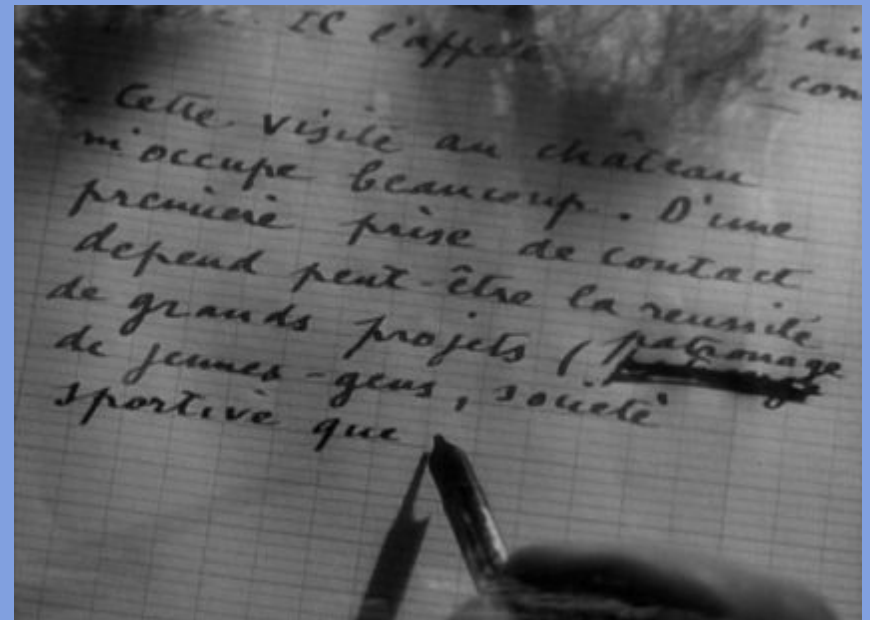 Il l'appelle
con
- Cette visite au château
m'occupe beaucoup. D'une
première prise de contact
depend peut-être la reussite
de grands projets (patronage
de jeunes-gens, société
sportive que